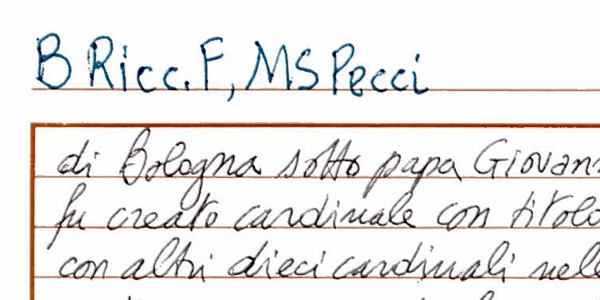 B Ricc. F, MS Pecci
di Bologna sotto papa Giovan
fu creato cardinale con titolo
con altri dieci cardinali nel